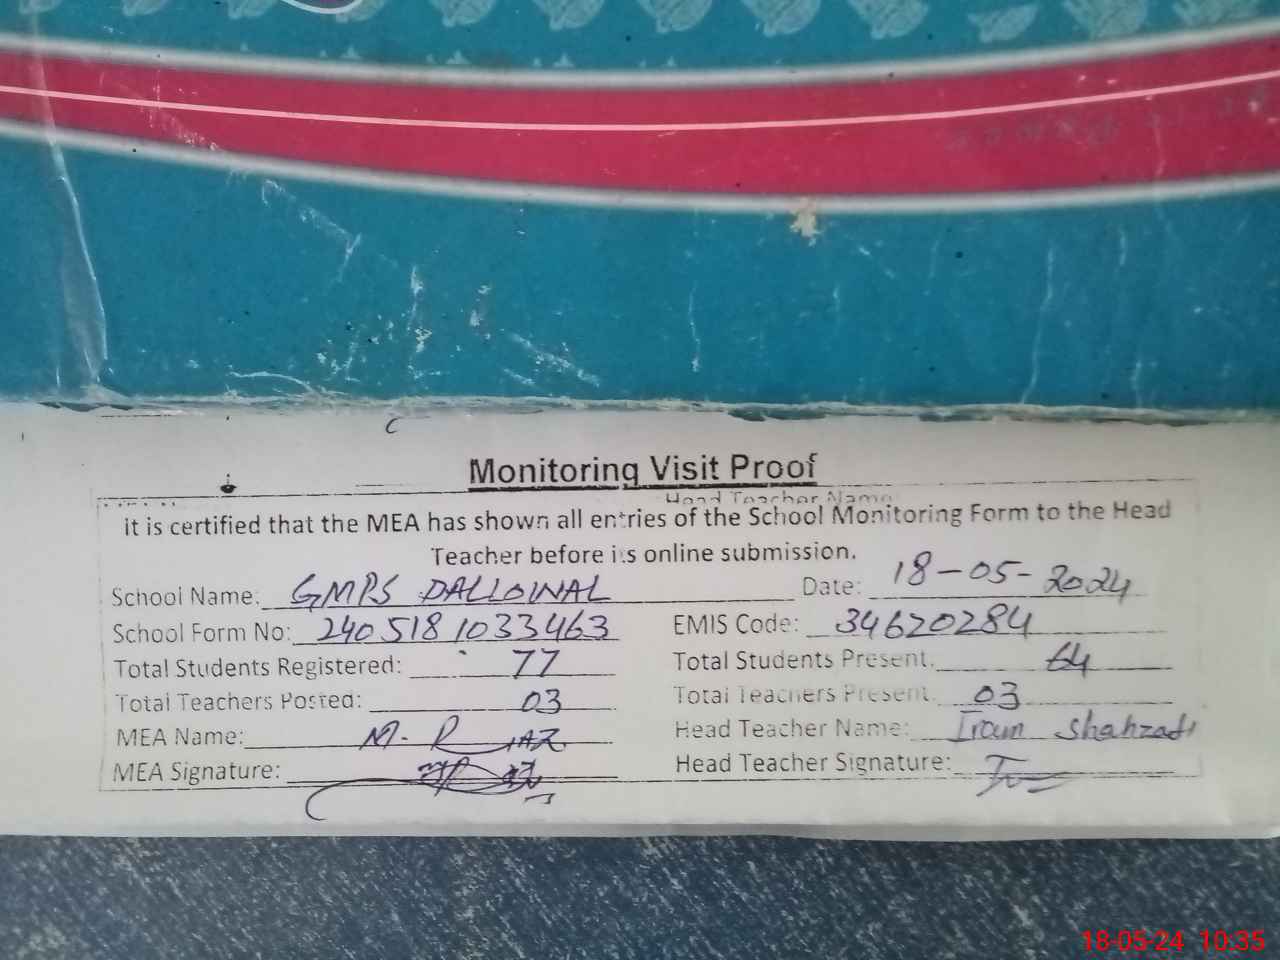 Monitoring Visit Proof
Head Teacher Name
it is certified that the MEA has shown all entries of the School Monitoring Form to the Head
Teacher before its online submission.
School Name: GMPS DALLOWAL Date: 18-05-2024
School Form No: 240518 1033463 EMIS Code: 34620284
Total Students Registered: 77 Total Students Present. 64
Total Teachers Posted: 03 Total Teachers Present. 03
MEA Name: M. RIAZ Head Teacher Name: Iram Shahzadi
MEA Signature: Head Teacher Signature:
18-05-24 10:35